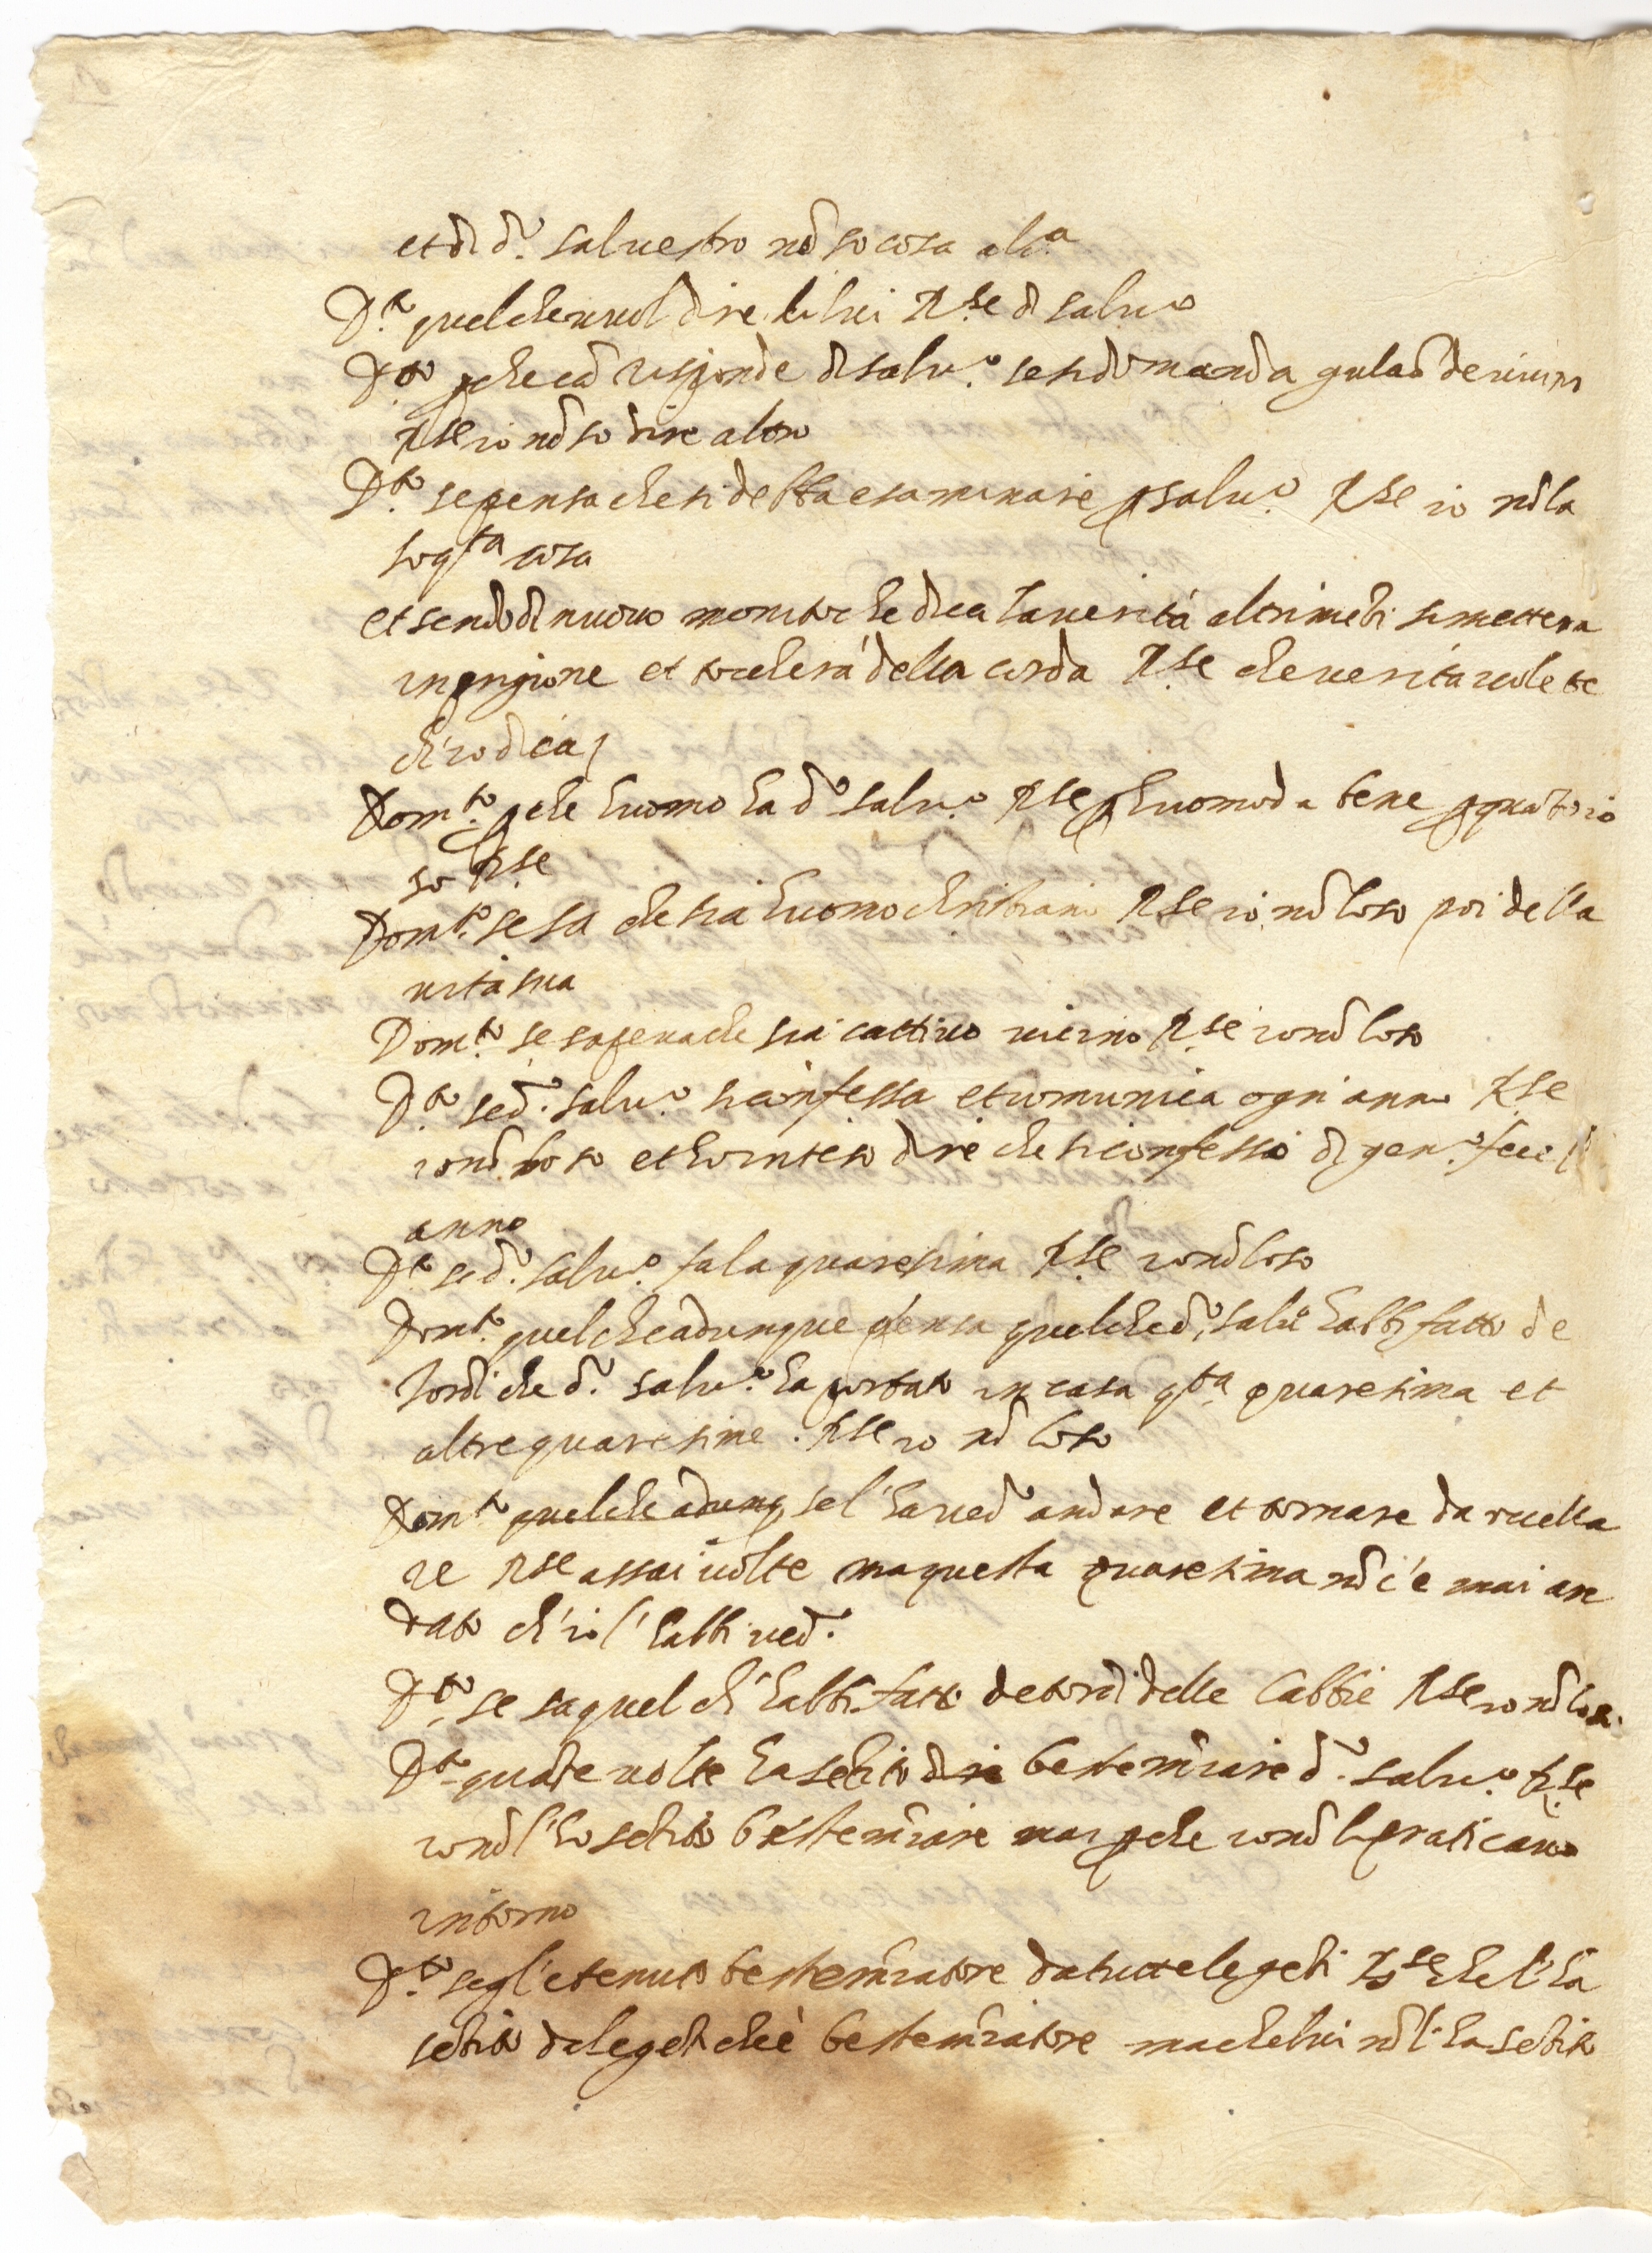 et di d.º saluestro nō so cosa alc.ª
D.to quel che vuol dire di lui R.se di salu.º
D.to p che cā risponde di salu.º se si domanda de vicini
R.se io nō so dire altro
D.to se pensa che si debba esaminare p salu.º R.se io nō la
so q.ta cosa
et sendo di nuouo monito che dica la uerità altrimēti si mettera
in prigione et tochera della corda R.se che uerita uolete
ch'io dica
Dom.to p che huomo ha d.º salu.º R.se p huomo da bene p quāto io
so R.se
Dom.to se sa che sia huomo christiano R.se io nō lo so poi della
uita sua
Dom.to se sapeua che sia cattiuo uicino R.se io nō lo so
D.to se d.º salu.º si confessa et comunica ogni anno R.se
io nō lo so et ho inteso dire che si confessò di gen.º
anno
D.to se d.º salu.º fa la quaresima R.se io nō lo so
Dom.to quel che adunque pensa quel che d.º salu.º habbi fatto de
tordi che d.º salu.º ha portato in casa q.ta quaresima et
altre quaresime. R.se io nō lo so
Dom.to quel che adunq se l'ha ued.º andare et tornare da vcella
re R.se assai uolte ma questa quaresima nō c'e mai an
dato ch'io l'habbi ued.º
D.to se sa quel ch'habbi fatto de tordi delle gabbie R.se io nō lo so.
D.to quāte uolte ha sētito dire bestemiare d.º salu.º R.se
io nō l'ho sētito bestemiare mai p che io nō li praticauo
intorno
D.to se gl'e tenuto bestemiatore da tutte le gēti R.se che l'ha
sētito da le gēti che è bestemiatore ma che lui nō l'ha sētito